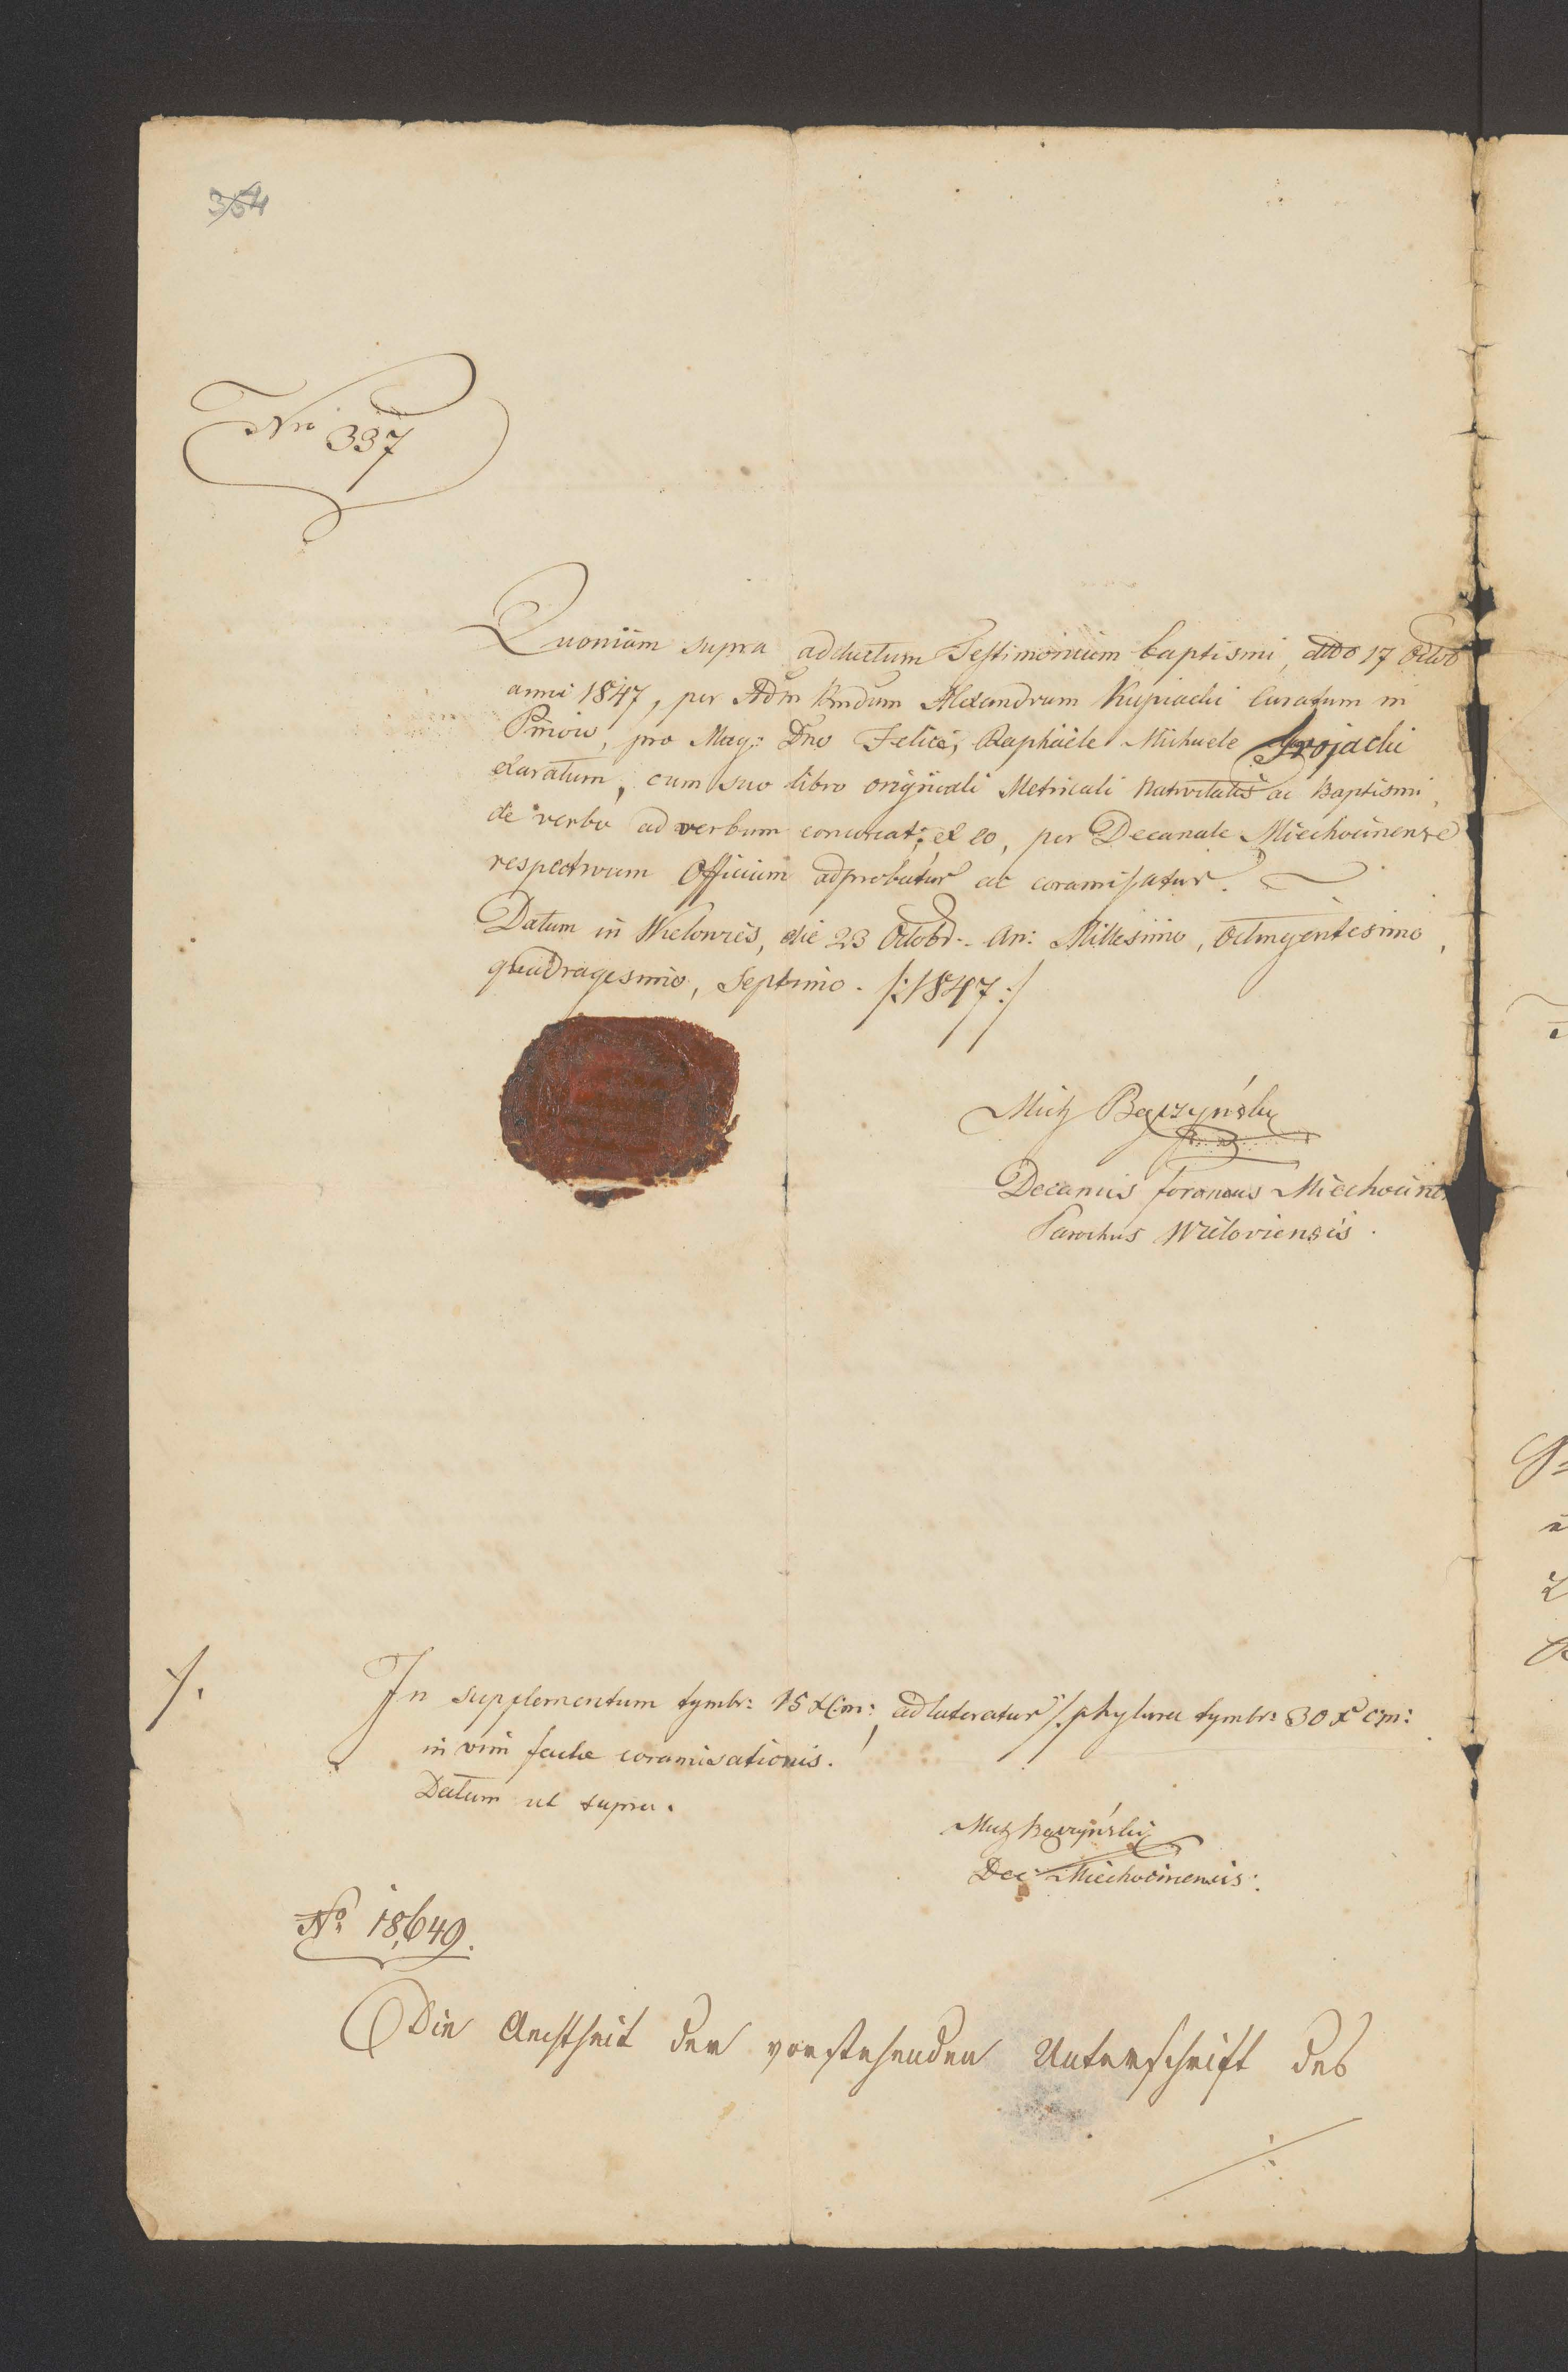 354
Nro 337
Quoniam supra adductum Testimonium baptismi, ddto 17 Octob
anni 1847, per Adm Rndum Alexandrum Kupiacki Curatum in
Pniow, pro Mag: Dno Felice, Raphaele Michaele Trojacki
elaratum, cum suo libro originali Metricali Nativitatis ac Baptismi,
de verbo ad verbum concoreat; ex eo, per Decanale Miechocinense
respectivum Officium adprobatur ac coramisatur.
Datum in Wielowies, die 23 Octobr. An: Millesimo, Octingentesimo,
quadragesimo, Septimo. /:1847:/
Mich Bączyński
Decanus foraneus Miechocinen
Parochus Wieloviensis.
/. In supplementum tymbr: 15 x Cm:, adlateratur /. phylura tymbr: 30 x cm:
in vim factae coramisationis.
Datum ut supra.
Mich Bączyński
Dec Miechocinensis.
No 18,649.
Die Aechtheit der vorstehenden Unterschrift des
./.